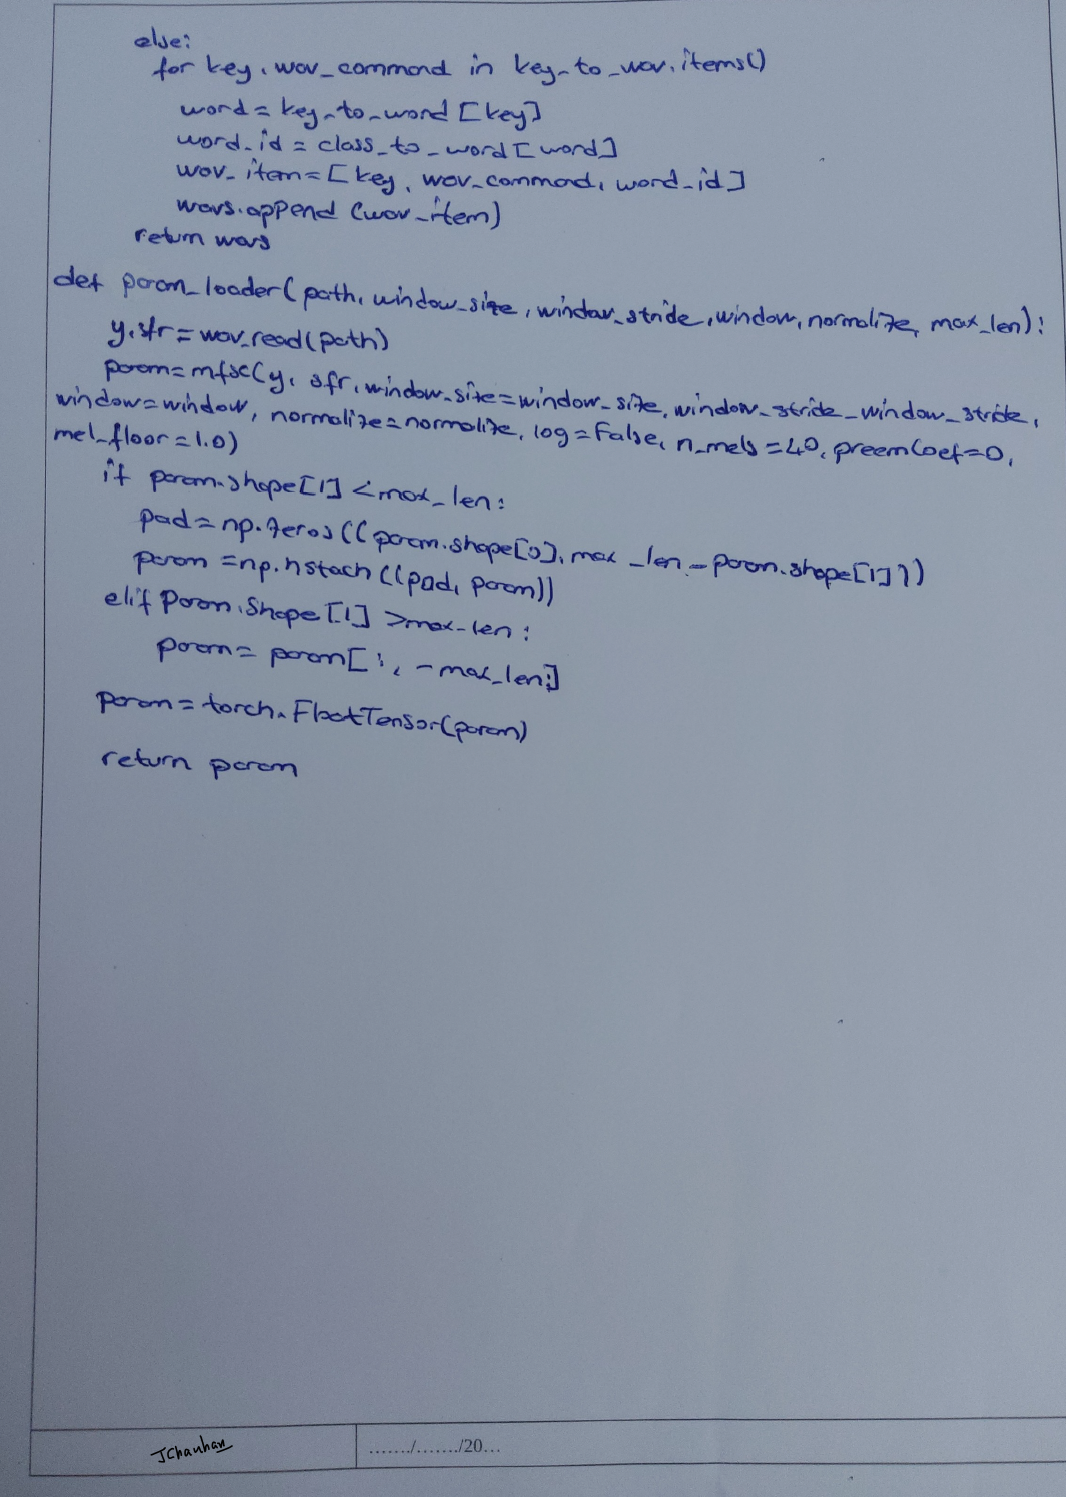 else:
for key, wav_command in key_to_wav.items()
word = key_to_word [key]
word_id = class_to_word [word]
wav_item = [key, wav_command, word_id]
wavs.append (wav_item)
return wavs
def param_loader( path, window_size, window_stride, window, normalize, max_len):
y, sfr = wav_read(path)
param = mfsc(y, sfr, window_size=window_size, window_stride_window_stride,
window=window, normalize=normalize, log=False, n_mels=40, preemCoef=0,
mel_floor=1.0)
if param.shape[1] < max_len:
pad = np.zeros((param.shape[0], max_len - param.shape[1]))
param = np.hstach((pad, param))
elif param.Shape[1] > max-len:
param = param[:, -max_len:]
param = torch.FloatTensor(param)
return param
JChauhan ......./......./20...